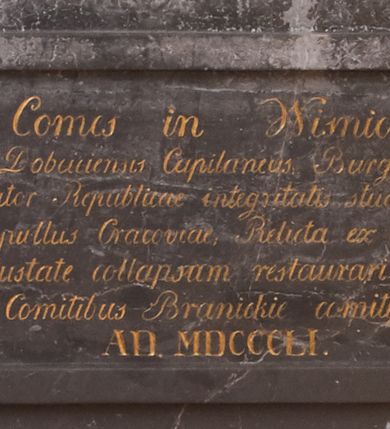 Comes in Wisnic
Dobciensis Capitaneus, Burg
ator Republicae integritatis stu
pullus Cracoviae, Relicta ex
ustate collapsam restaurari
Comitibus Branickie comit
AD. MDCCCLI.